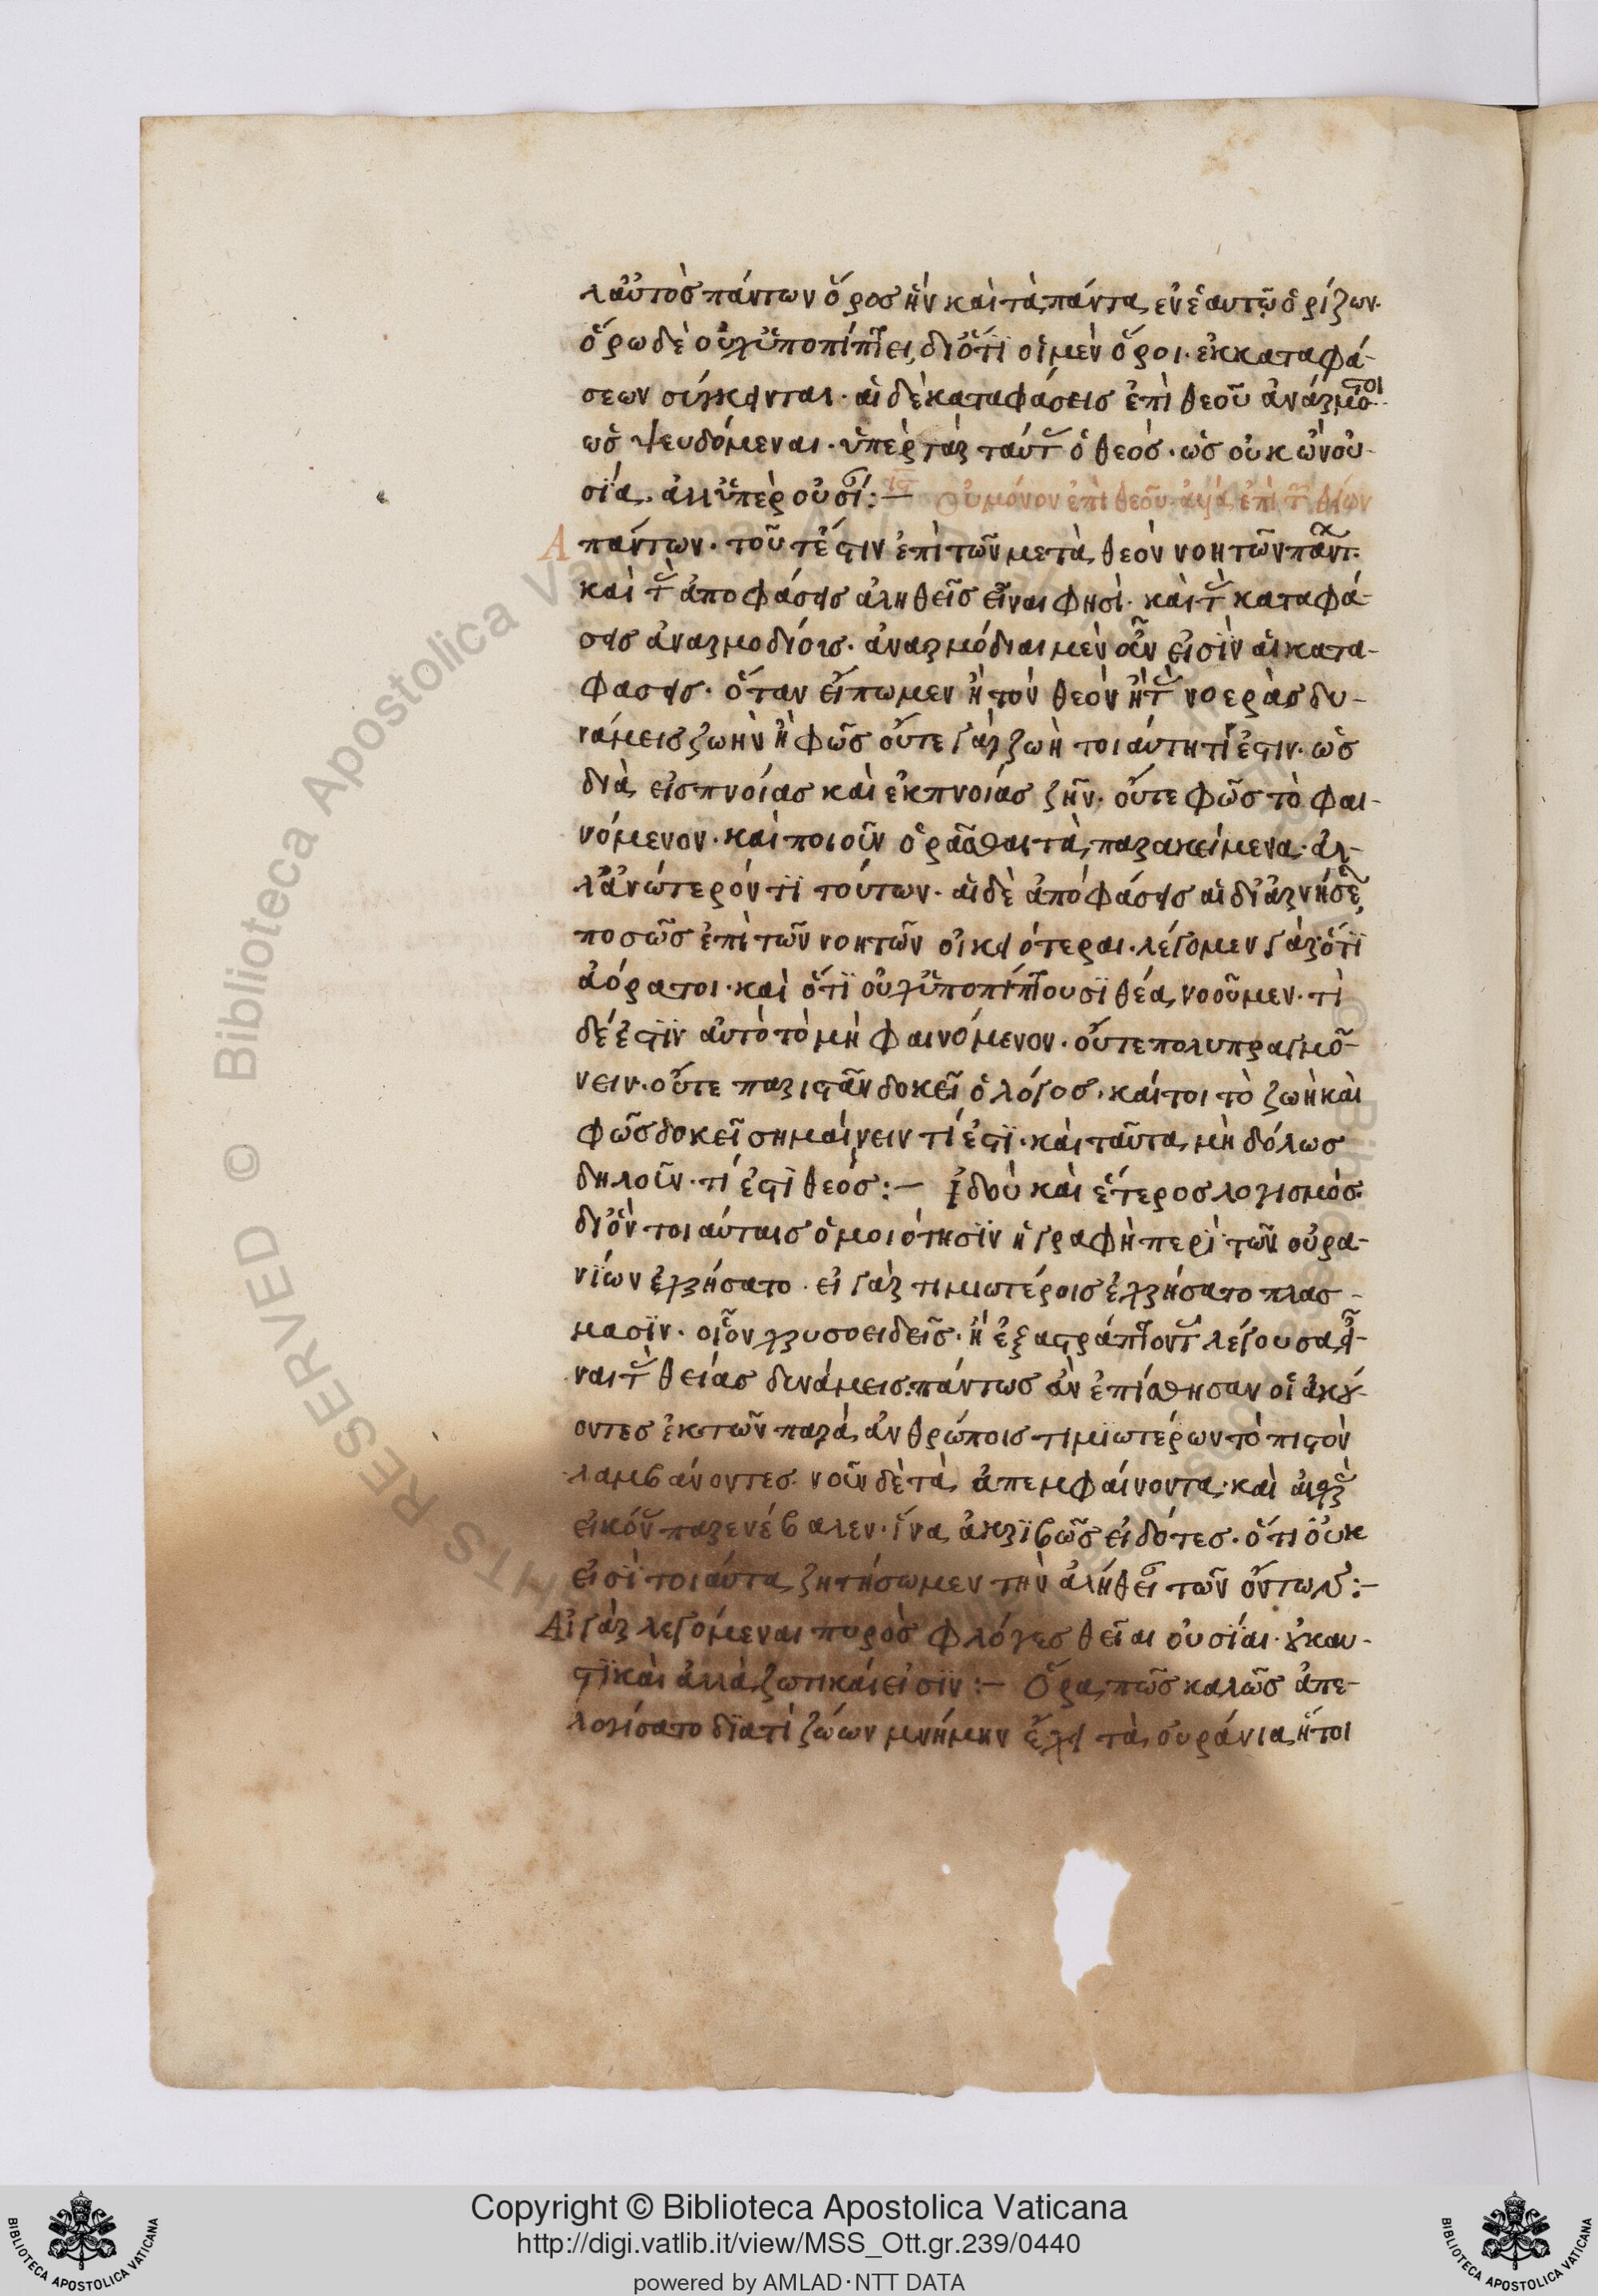 λ' αὐτὸς πάντων ὅρος ἦν καὶ τὰ πάντα ἐν ἑαυτῷ ὁρίζων·
ὅρω δὲ οὐχ ὑποπίπτει, διότι οἱ μὲν ὅροι· ἐκ καταφά-
σεων σύγκεινται· αἱ δὲ καταφάσεις ἐπὶ θεοῦ ἀνάρμοστοι
ὡς ψευδόμεναι· ὑπὲρ γὰρ ταύτ ὁ θεός· ὡς οὐκ ὢν οὐ-
σία, ἀλλ' ὑπὲρ οὐσί:— ιϛ Οὐ μόνον ἐπὶ θεοῦ ἀλλὰ ἐπὶ τ θείων
Ἁπάντων· τοῦτέστιν ἐπὶ τῶν μετὰ θεὸν νοητῶν πάντ·
καὶ τ ἀποφάσεις ἀληθεῖς εἶναι φησὶ· καὶ τ καταφά-
σεις ἀναρμοδίοις· ἀναρμόδιαι μὲν οὖν εἰσὶν αἱ κατα-
φασεις· ὅταν εἴπωμεν ἢ τὸν θεὸν ἢ τ νοερὰς δυ-
νάμεις ζωὴν ἢ φῶς οὔτε γὰρ ζωὴ τοιαύτη τί ἐστιν· ὡς
διὰ εἰσπνοίας καὶ ἐκπνοίας ζῆν· οὔτε φῶς τὸ φαι-
νόμενον· καὶ ποιοῦν ὁρᾶσθαι τὰ παρακείμενα· ἀλ-
λ' ἀνώτερόν τι τούτων· αἱ δὲ ἀποφάσεις αἱ δι' ἀρνήσε
πὸς ὡς ἐπὶ τῶν νοητῶν οἰκειότεραι· λέγομεν γὰρ ὅτι
ἀόρατοι· καὶ ὅτι οὐχ ὑποπίπτουσι θέα, νοοῦμεν· τὶ
δέ ἐστιν αὐτὸ τὸ μὴ φαινόμενον· οὔτε πολυπραγμο-
νειν· οὔτε παριστᾶν δοκεῖ ὁ λόγος· καίτοι τὸ ζωὴ καὶ
φῶς δοκεῖ σημαίνειν τί ἐστι· καὶ ταῦτα μὴ δόλως
δηλοῦν· τί ἐστι θεός:— Ἰδοὺ καὶ ἕτερος λογισμός·
δι' ὃν τοιαύταις ὁμοιότησιν ἡ γραφὴ περὶ τῶν οὐρα-
νίων ἐχρήσατο· εἰ γὰρ τιμιωτέροις ἐχρήσατο πλάσ-
μασιν· οἷον χρυσοειδεῖς· ἢ ἐξαστράπτοντ λέγουσα εἶ-
ναι τ θείας δυνάμεις· πάντως ἂν ἐπίσθησαν οἱ ἀκού-
οντες ἐκ τῶν παρὰ ἀνθρώποις τιμιωτέρων τὸ πιστὸν
λαμβάνοντες· νῦν δὲ τὰ ἀπεμφαίνοντα· καὶ αἰσχρ
εἰκόν παρενέβαλεν· ἵνα ἀκριβῶς εἰδότες· ὅτι οὐκ
εἰσὶ τοιαύτα, ζητήσωμεν τὴν ἀλήθει τῶν ὄντων:—
Αἱ γὰρ λεγόμεναι πυρὸς φλόγες θεῖαι οὐσίαι· οὐ καυ-
στικαὶ ἀλλὰ ζωτικαί εἰσιν:— Ὅρα, πῶς καλῶς ἀπε-
λογίσατο διατὶ ζώων μνήμην ἔχει τὰ οὐράνια, ἤτοι
Copyright © Biblioteca Apostolica Vaticana
http://digi.vatlib.it/view/MSS_Ott.gr.239/0440
powered by AMLAD·NTT DATA